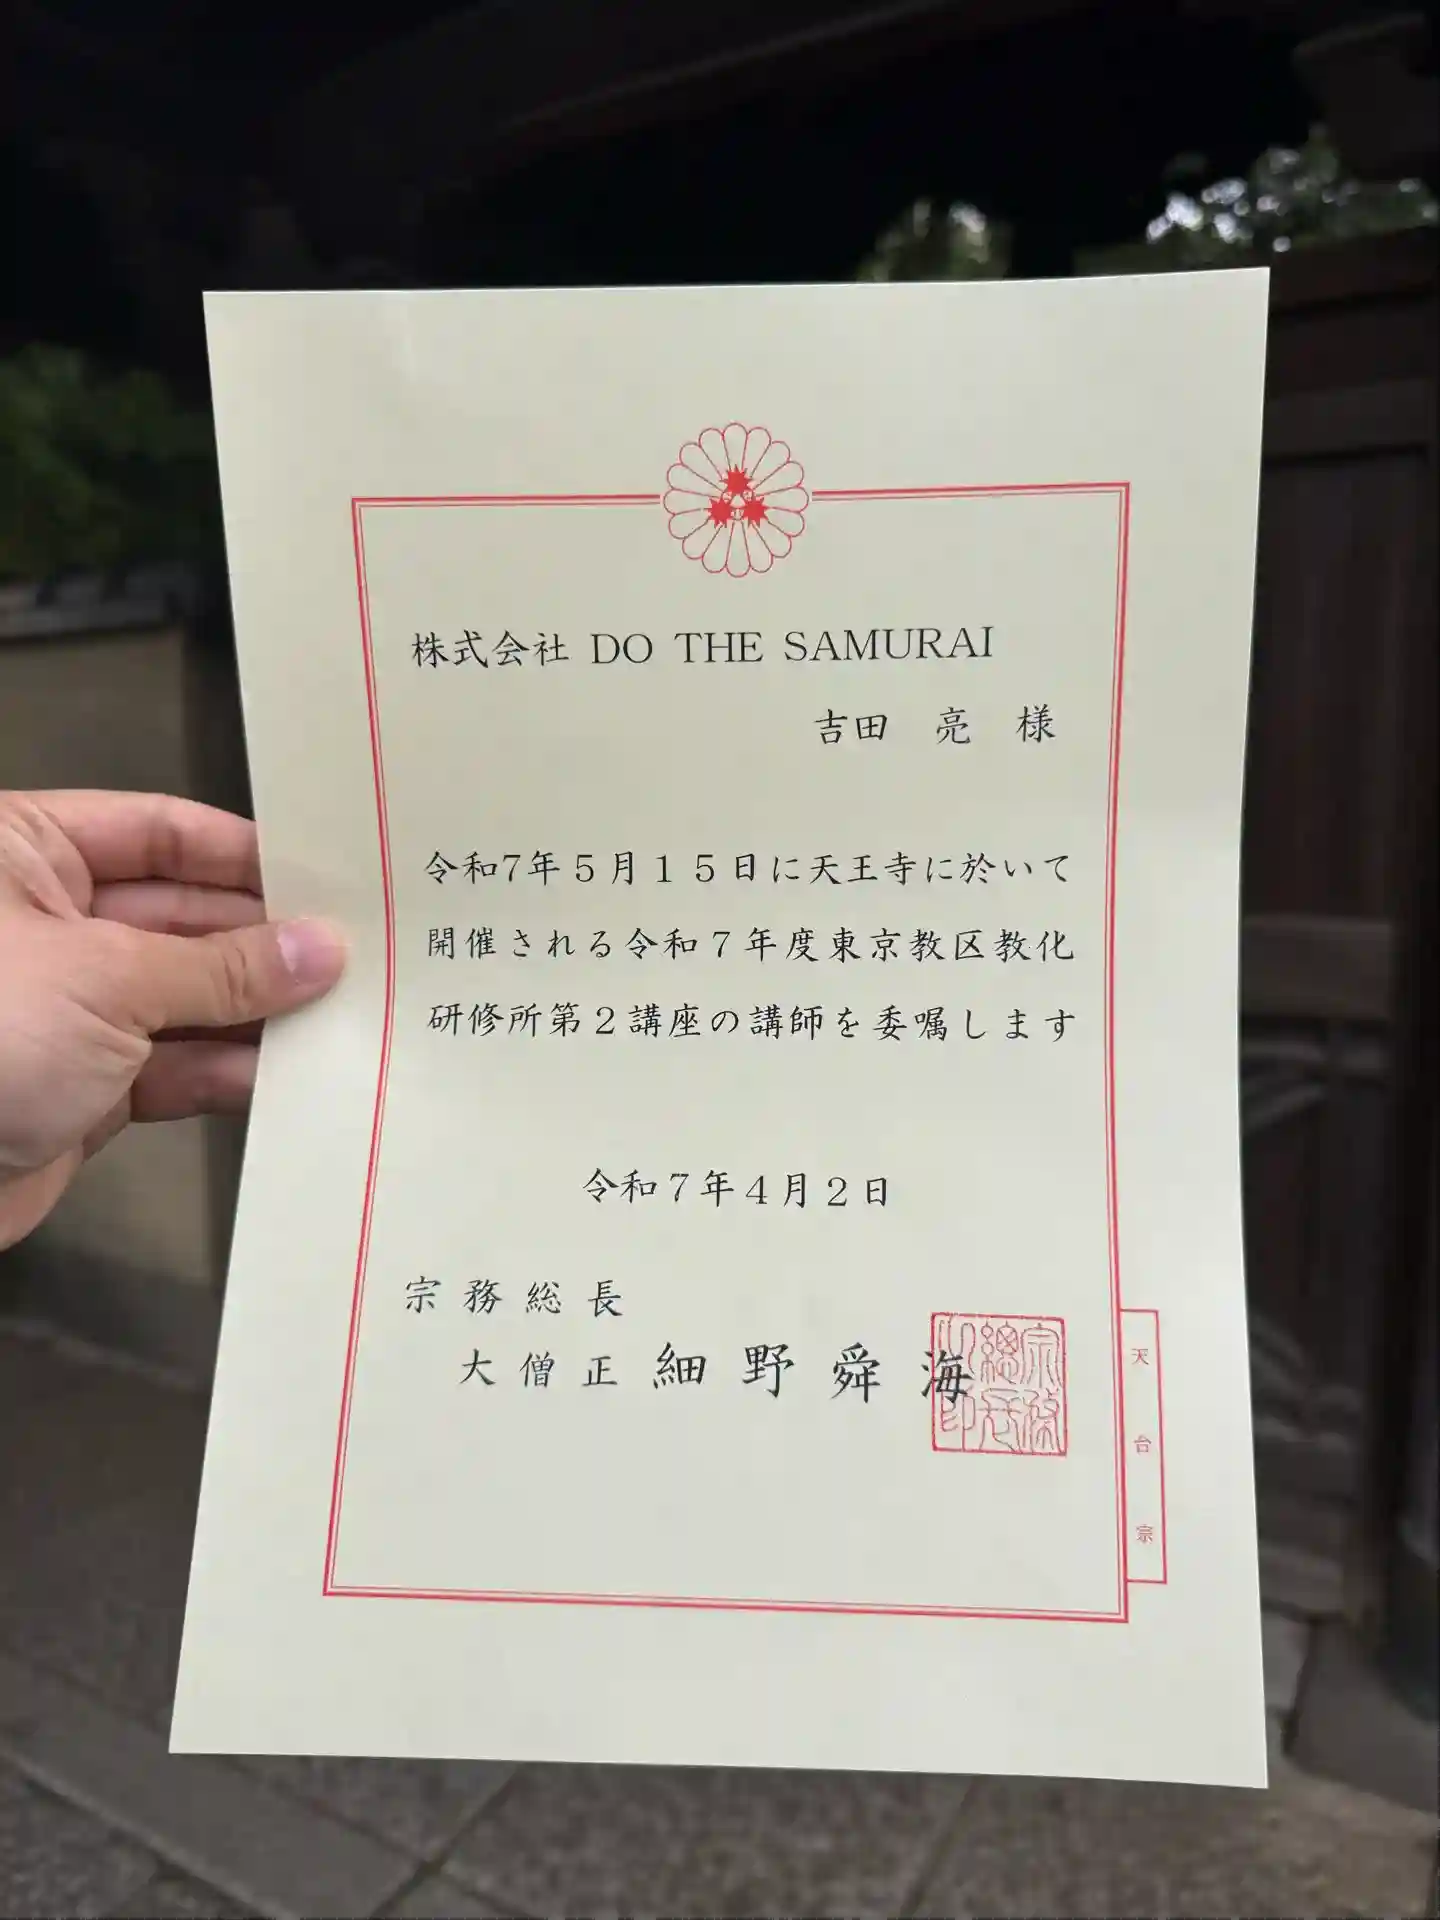 株式会社 DO THE SAMURAI
吉田　亮　様
令和7年５月１５日に天王寺に於いて
開催される令和７年度東京教区教化
研修所第２講座の講師を委嘱します
令和７年４月２日
宗務総長
大僧正 細野舜海
宗務總長之印
天台宗